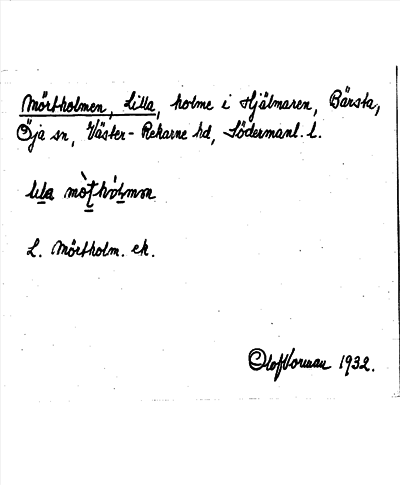 Mörtholmen, Lilla, holme i Hjälmaren, Bärsta,
Öja sn, Väster-Rekarne hd, Södermanl. l.
lila mòt̠hòlmən
L. Mörtholm. ek.
Olof 1932.